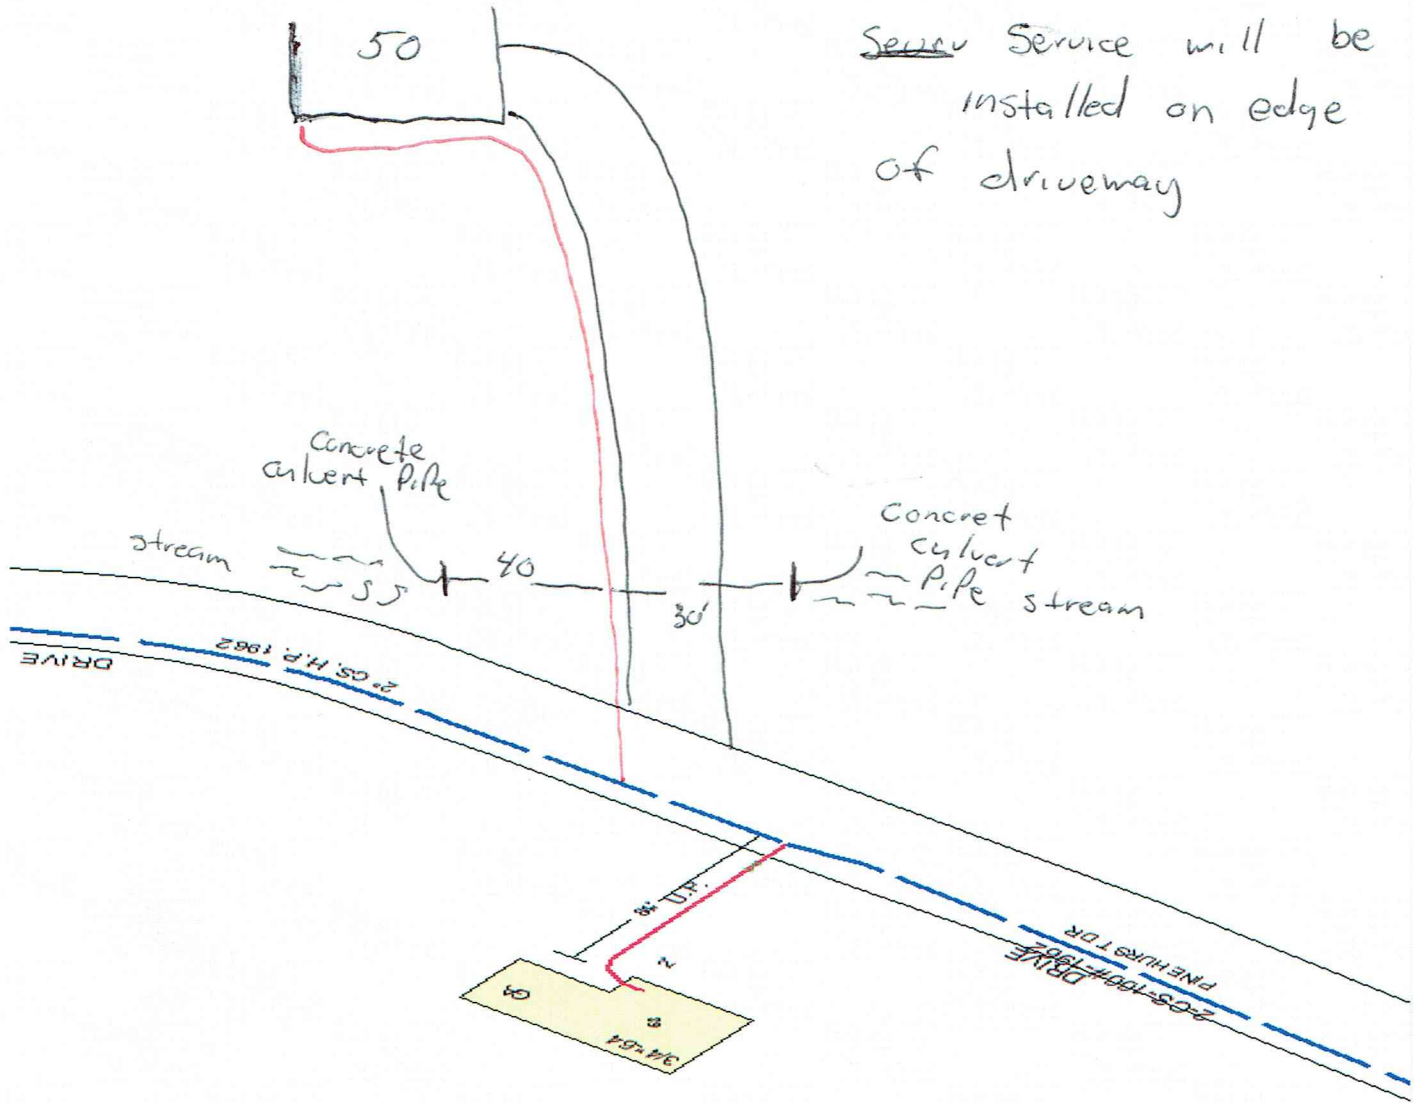 50
Service will be
installed on edge
of driveway
Concrete
culvert Pipe
stream
40
30'
Concret
culvert
Pipe
stream
DRIVE
2" CS, H.P. 1962
U.P.
N
GA
3/4"-64
DRIVE
PINEHURST DR